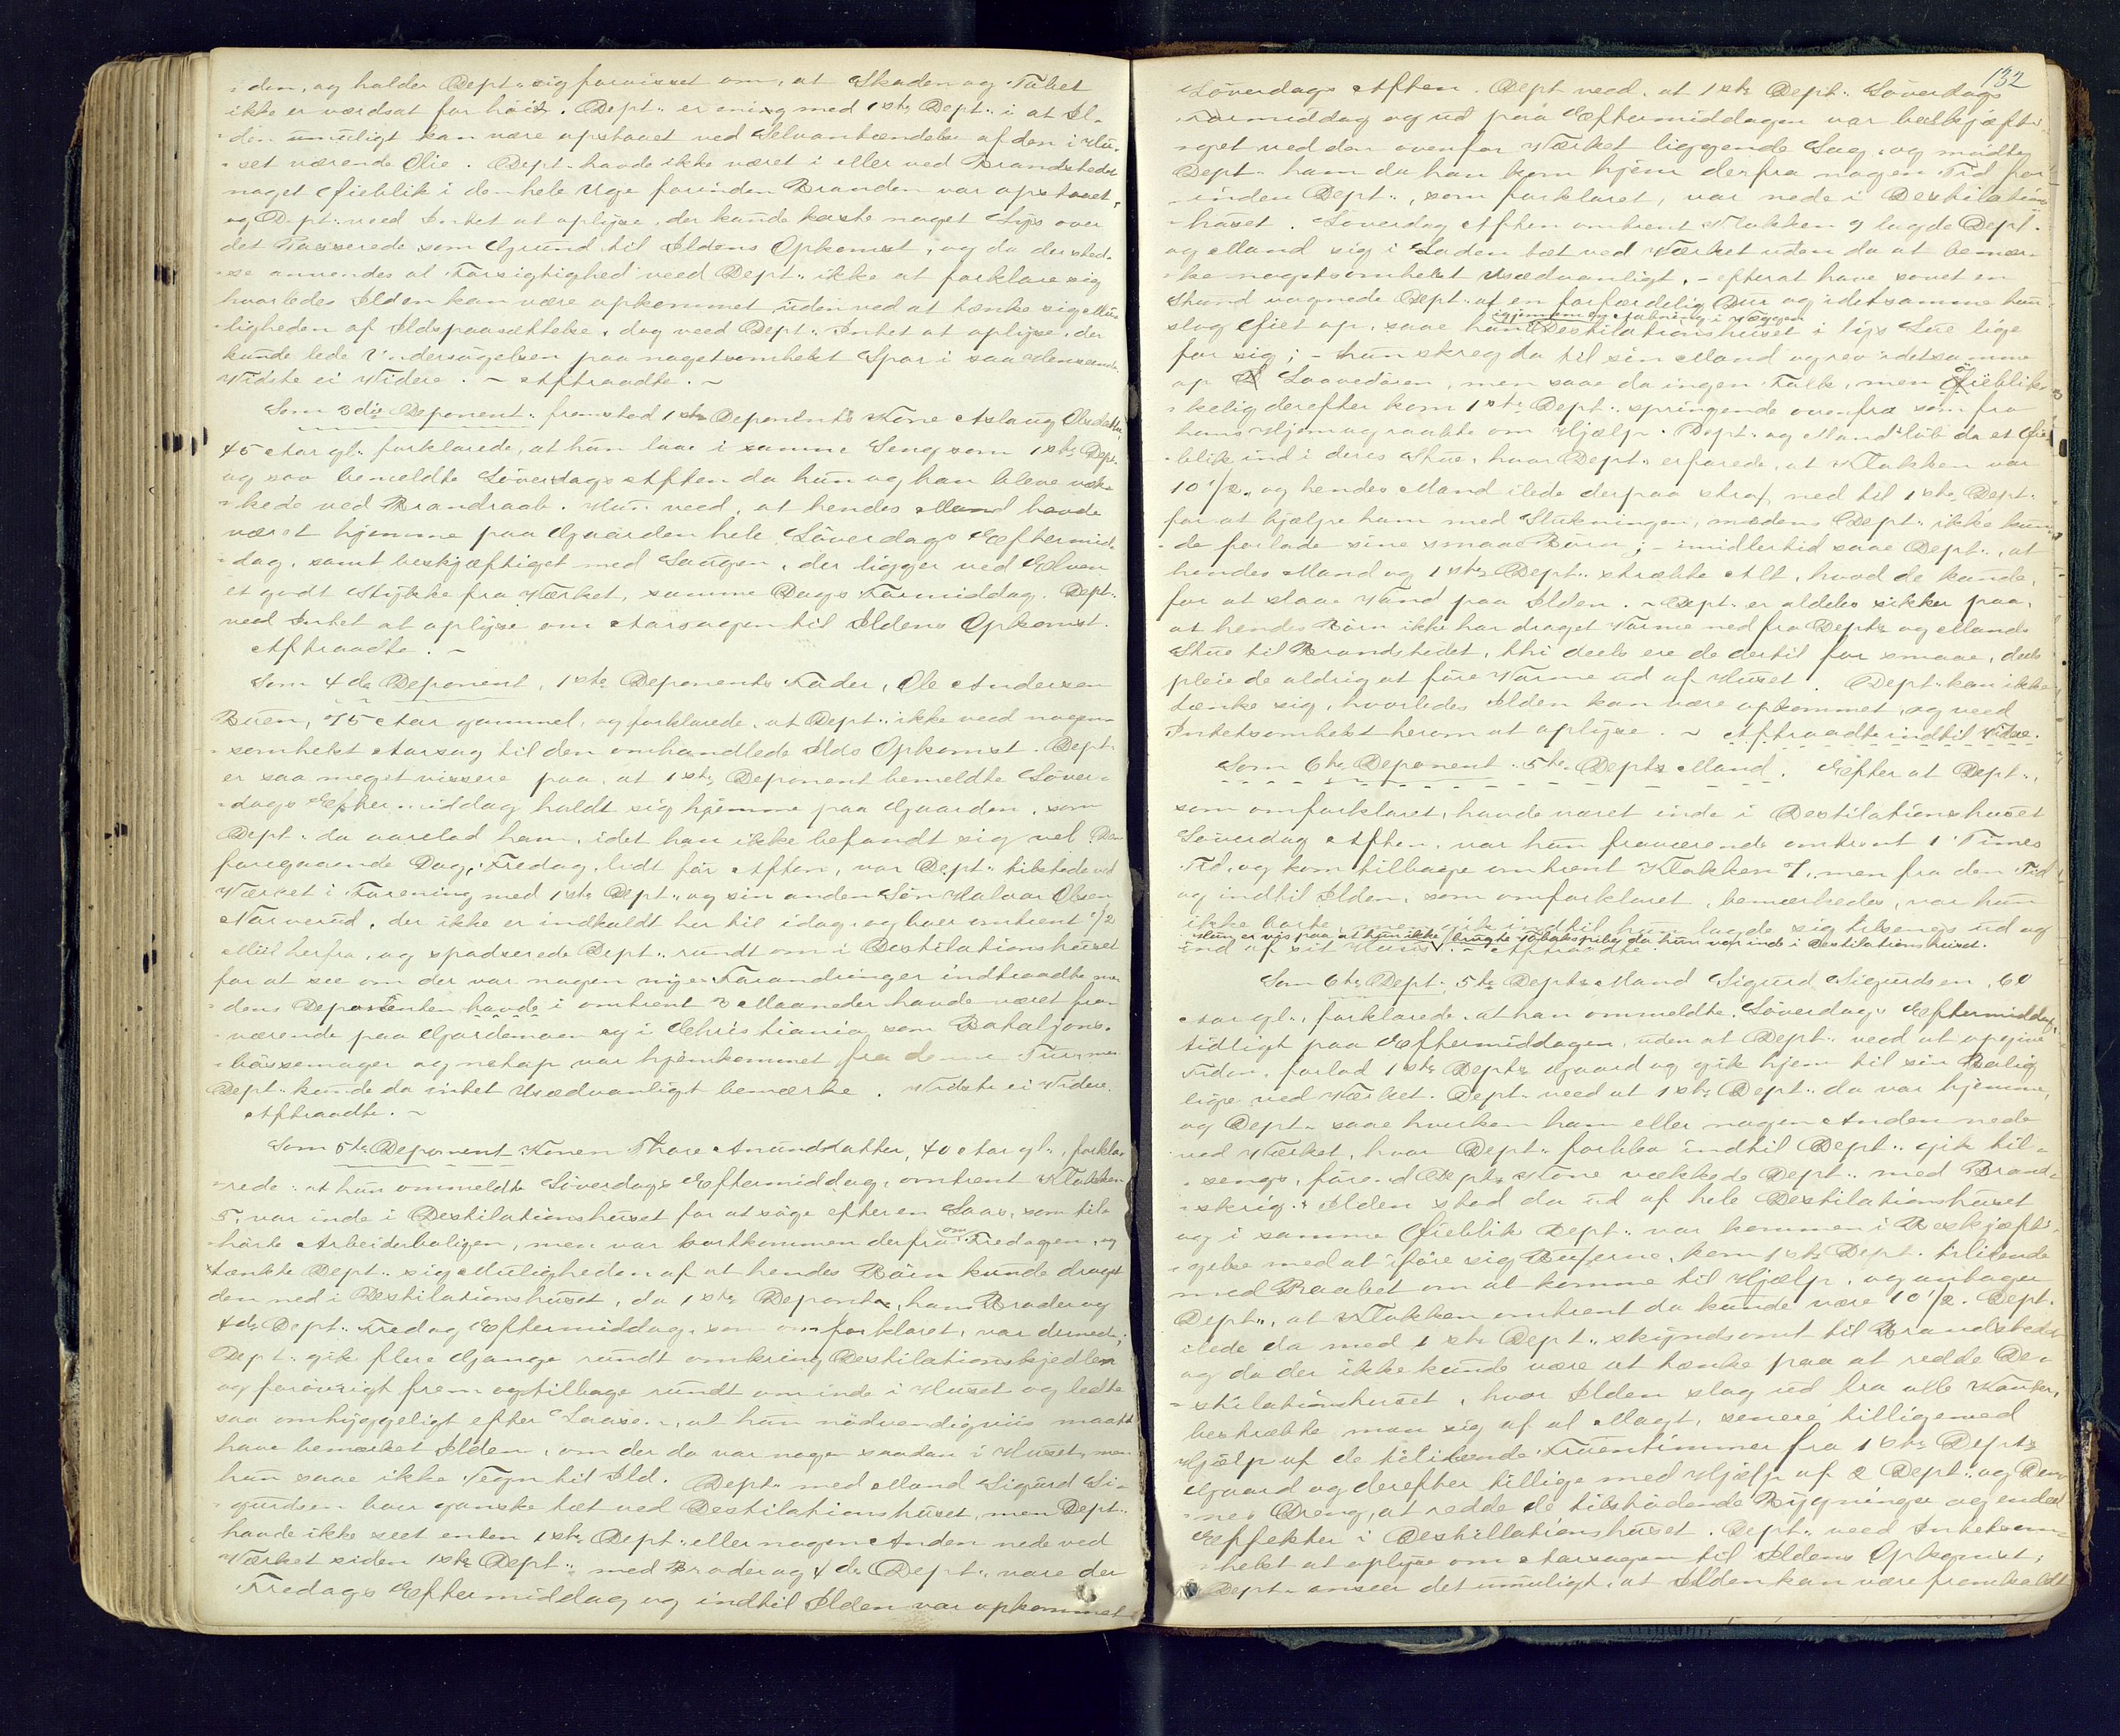 den, og holder Dept. sig forvisset om, at Skaden og Tabet
ikke er værdsat for høit. Dept. er enig med 1ste Dept. i at Il-
den umuligt kan være opstaaet ved Selvantændelse af den i Hu-
set værende Olie. Dept. havde ikke været i eller ved Brandstedet
noget Øieblik i den hele Uge forinden Branden var opstaaet,
og Dept. veed Intet at oplyse, der kunde kaste noget Lys over
det Passerede som Grund til Ildens Opkomst, og da der sted-
se anvendes al Forsigtighed veed Dept. ikke at forklare sig
hvorledes Ilden kan være opkommet, uden ved at tænke sig Mu-
ligheden af Ildspaasættelse, dog veed Dept. Intet at oplyse, der
kunde lede Undersøgelsen paa nogetsomhelst Spor i saa Henseende.
Vidste ei Videre. - Aftraadte. -
Som 3die Deponent fremstod 1ste Deponents Kone Aslaug Olsdatter,
45 Aar gl. forklarede, at hun laae i samme Seng som 1ste Dept.
og sov bemeldte Løverdags Aften da hun og han bleve væk-
kede ved Brandraab. Hun veed, at hendes Mand havde
været hjemme paa Gaarden hele Løverdags Eftermid-
dag, samt beskjæftiget med Saugen, der ligger ved Elven
et godt Stykke fra Værket, samme Dags Formiddag. Dept.
ved Intet at oplyse om Aarsagen til Ildens Opkomst.
Aftraadte. -
Som 4de Deponent, 1ste Deponents Fader, Ole Andersen
Buen, 75 Aar gammel, og forklarede, at Dept. ikke veed nogen-
somhelst Aarsag til den omhandlede Ilds Opkomst. Dept.
er saa meget vissere paa, at 1ste Deponent bemeldte Løver-
dags Eftermiddag holdt sig hjemme paa Gaarden, som
Dept. da overlod ham, idet han ikke befandt sig vel. Den
foregaaende Dag, Fredag, lidt før Aften, var Dept. tilstede ved
Værket i Forening med 1ste Dept. og sin anden Søn Halvor Olsen
Narverud, der ikke er indkaldt her til idag, og boer omtrent 1/2
Miil herfra, og spadserede Dept. rundt om i Destilationshuset
for at see om der var nogen nye Forandringer indtraadte me-
dens Deponenten havde i omtrent 3 Maaneder havde været fra-
værende paa Gardemoen og i Christiania som Bataljons-
bøssemager og netop var hjemkommet fra denne Tur, men
Dept. kunde da intet Usædvanligt bemærke. Vidste ei Videre.
Aftraadte. -
Som 5te Deponent Konen Thore Anundsdatter, 40 Aar gl., forkla-
rede: at hun ommeldte Løverdags Eftermiddag, omtrent Klokken
5, var inde i Destilationshuset for at søge efter en Laas, som til-
hørte Arbeiderboligen, men var bortkommen derfra om Fredagen, og
tænkte Dept. sig Muligheden af at hendes Børn kunde draget
den ned i Destilationshuset, da 1ste Deponent, hans Broder og
4de Dept. Fredag Eftermiddag, som omforklaret, var dernede;
Dept. gik flere Gange rundt omkring Destilationskjedlen
og forøvrigt frem og tilbage rundt om inde i Huset og ledte
saa omhyggeligt efter Laasen, at hun nødvendigviis maatte
have bemærket Ilden, om der da var nogen saadan i Huset, men
hun saae ikke Tegn til Ild. Dept. med Mand Sigurd Si-
gurdsen boer ganske tæt ved Destilationshuset, men Dept.
havde ikke seet enten 1ste Dept. eller nogen Anden nede ved
Værket siden 1ste Dept. med Broder og 4de Dept. vare der
Fredags Eftermiddag og indtil Ilden var opkommet
132
Løverdags Aften. Dept. veed, at 1ste Dept. Løverdags
Formiddag og ud paa Eftermiddagen var beskjæfti-
get ved den ovenfor Værket liggende Sag, og mødte
Dept. ham da han kom hjem derfra nogen Tid for-
inden Dept., som forklaret, var nede i Destilations-
huset. Løverdag Aften omtrent Klokken 9 lagde Dept.
og Mand sig i Laden tæt ved Værket uden da at bemær-
ke nogetsomhelst Usædvanligt, - efterat have sovet en
Stund vognede Dept. af en forfærdelig Dur og idetsamme hun
igjennem en Aabning i Væggen
slog Øiet op, saae hun Destilationshuset i lys Lue lige
for sig; - hun skreg da til sin Mand og rev idetsamme
op Laavedøren, men saae da ingen Folk, men Øieblik-
kelig derefter kom 1ste Dept. springende ovenfra som fra
hans Hjem og raabte om Hjælp. Dept. og Mand løb da et Øie-
blik ind i deres Stue, hvor Dept. erfarede, at Klokken var
10 1/2, og hendes Mand ilede derpaa straf ned til 1ste Dept.
for at hjælpe ham med Slukningen, medens Dept. ikke kun-
de forlade sine smaae Børn; - imidlertid saae Dept., at
hendes Mand og 1ste Dept. stræbte Alt, hvad de kunde,
for at slaae Vand paa Ilden. - Dept. er aldeles sikker paa,
at hendes Børn ikke har draget Varme ned fra Depts og Mands
Stue til Brandstedet, thi deels ere de dertil for smaae, deels
pleie de aldrig at føre Varme ud af Huset. Dept. kan ikke
tænke sig, hvorledes Ilden kan være opkommet, og veed
Intetsomhelst herom at oplyse. - Aftraadte indtil Videre.
Som 6te Deponent 5te Depts Mand. Efter at Dept.,
som omforklaret, havde været inde i Destilationshuset
Løverdag Aften, var hun fraværende omtrent 1 Times
Tid, og kom tilbage omtrent Klokken 7, men fra den Tid
og indtil Ilden, som omforklaret, bemærkedes, var hun
ikke borte, men gik indtil hun lagde sig tilsengs ud og
Hun er vis paa at hun ikke brugte Tobakspibe da hun var inde i Destilationshuset.
ind af sit Huus. - Aftraadte.
Som 6te Dept. 5te Depts Mand Sigurd Sigurdsen, 60
Aar gl., forklarede, at han ommeldte Løverdags Eftermiddag,
tidligt paa Eftermiddagen, uden at Dept. veed at opgive
Tiden, forlod 1ste Depts Gaard og gik hjem til sin Bolig
lige ved Værket. Dept. veed at 1ste Dept. da var hjemme,
og Dept. saae hverken ham eller nogen Anden nede
ved Værket, hvor Dept. forblev indtil Dept. gik til-
sengs, førend Depts Kone vækkede Dept. med Brand-
skrig. Ilden stod da ud af hele Destilationshuset
og i samme Øieblik Dept. var kommen i Beskjæfti-
gelse med at iføre sig Buxerne, kom 1ste Dept. tililende
med Raabet om at komme til Hjælp, og antager
Dept., at Klokken omtrent da kunde være 10 1/2. Dept.
ilede da med 1ste Dept. skyndsomt til Brandstedet
og da der ikke kunde være at tænke paa at redde De-
stilationshuset, hvor Ilden slog ud fra alle Kanter,
bestræbte man sig af al Magt, senere tilligemed
Hjælp af de tililende Fruentimmer fra 1ste Depts
Gaard og derefter tillige med Hjælp af 2 Dept. og Den-
nes Dreng, at redde de tilstødende Bygninger og endeel
Effekter i Destillationshuset. Dept. veed Intetsom-
helst at oplyse om Aarsagen til Ildens Opkomst;
Dept. anseer det umuligt, at Ilden kan være fremkaldt